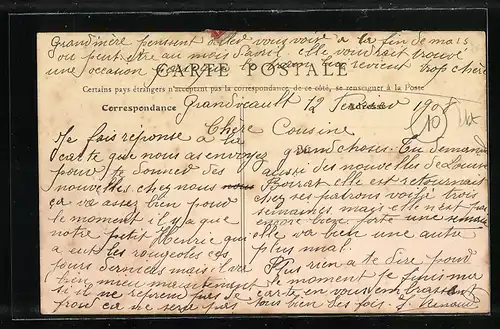 Grandmère pensent aller vous voir a la fin de mars
ou peut être au mois d'avril elle voudrait trouvé
une occasion le train lui revient trop chère
CARTE POSTALE
Certains pays étrangers n'acceptant pas la correspondance de ce côté, se renseigner à la Poste
Correspondance
12 190
Chère Cousine
Je fais réponse a ta
carte que nous as envoyez
pour te donner des
nouvelles chez nous
ça va assez bien pour
le moment il y a que
notre petit Henrie qui
a eut les rougeoles ces
jours derniers mais il va
bien mieu maintenant
si il ne reprend pas de
froid ça ne sera pas
grand choses Tu demande
aussi des nouvelles de Louise
elle est retournait
chez ses patrons voila trois
semaines mais elle n'est pas
encore bien forte une semaine
elle va bien une autre
plus mal.
Plus rien a te dire pour
le moment je finis ma
carte en vous embrassant
tous bien des fois.